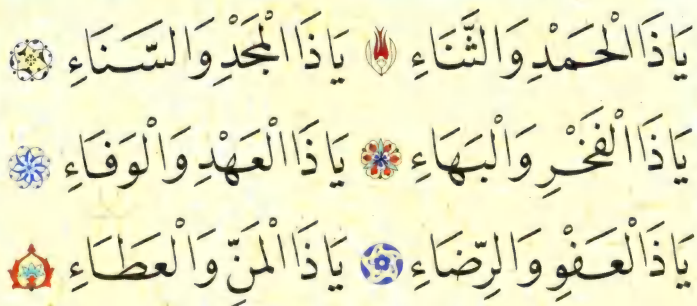 يَاذَا الْحَمْدِ وَالثَّنَاءِ يَاذَا الْمَجْدِ وَالسَّنَاءِ
يَاذَا الْفَخْرِ وَالْبَهَاءِ يَاذَا الْعَهْدِ وَالْوَفَاءِ
يَاذَا الْعَفْوِ وَالرِّضَاءِ يَاذَا الْمَنِّ وَالْعَطَاءِ